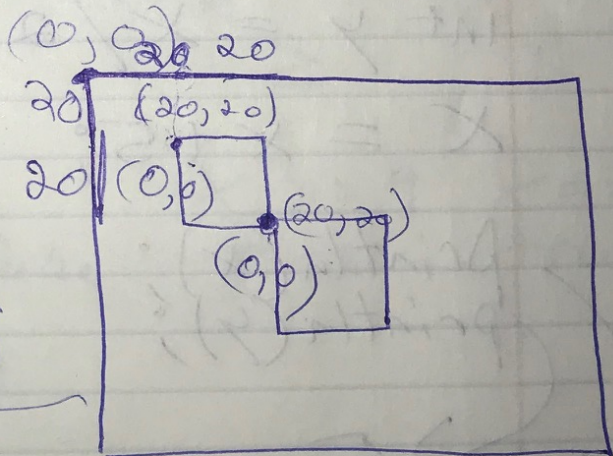 (0, 0) 20 20
20 (20, 20)
20 (0, 0) (20, 20)
(0, 0)